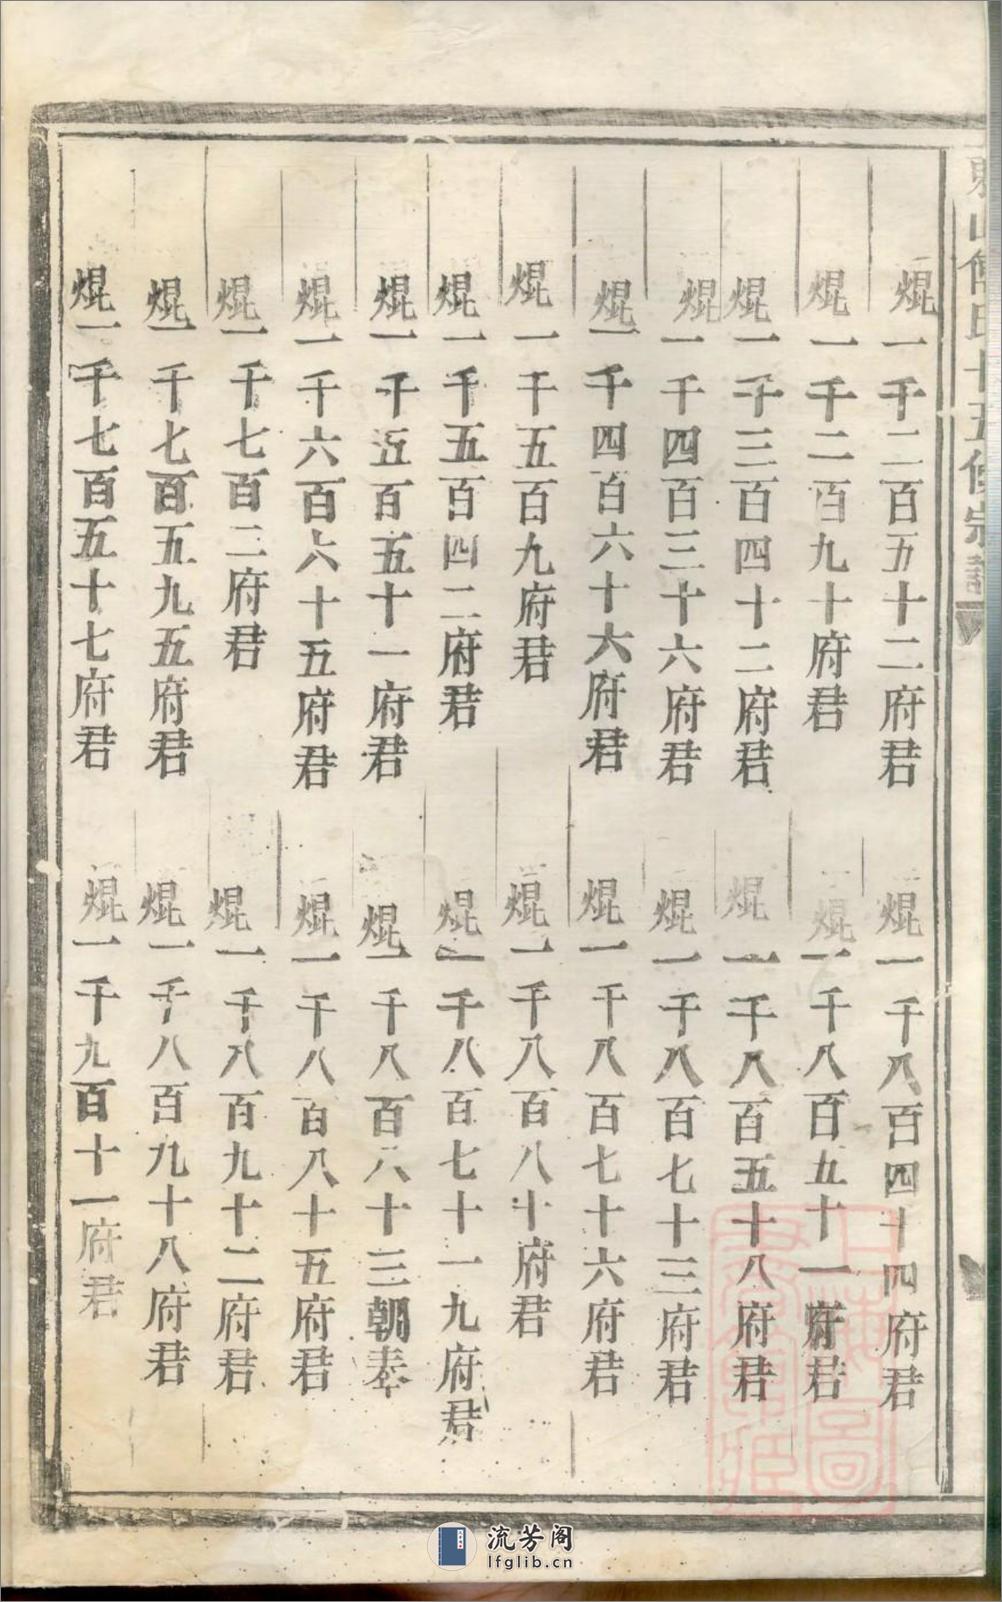 焜一千二百五十二府君
焜一千二百九十府君
焜一千三百四十二府君
焜一千四百三十六府君
焜一千四百六十六府君
焜一千五百九府君
焜一千五百四二府君
焜一千五百五十一府君
焜一千六百六十五府君
焜一千七百二府君
焜一千七百五九五府君
焜一千七百五十七府君
焜一千八百四十四府君
焜一千八百五十一府君
焜一千八百五十八府君
焜一千八百七十三府君
焜一千八百七十六府君
焜一千八百八十府君
焜一千八百七十一九府君
焜一千八百六十三朝奉
焜一千八百八十五府君
焜一千八百九十二府君
焜一千八百九十八府君
焜一千九百十一府君
流芳阁
lfglib.cn